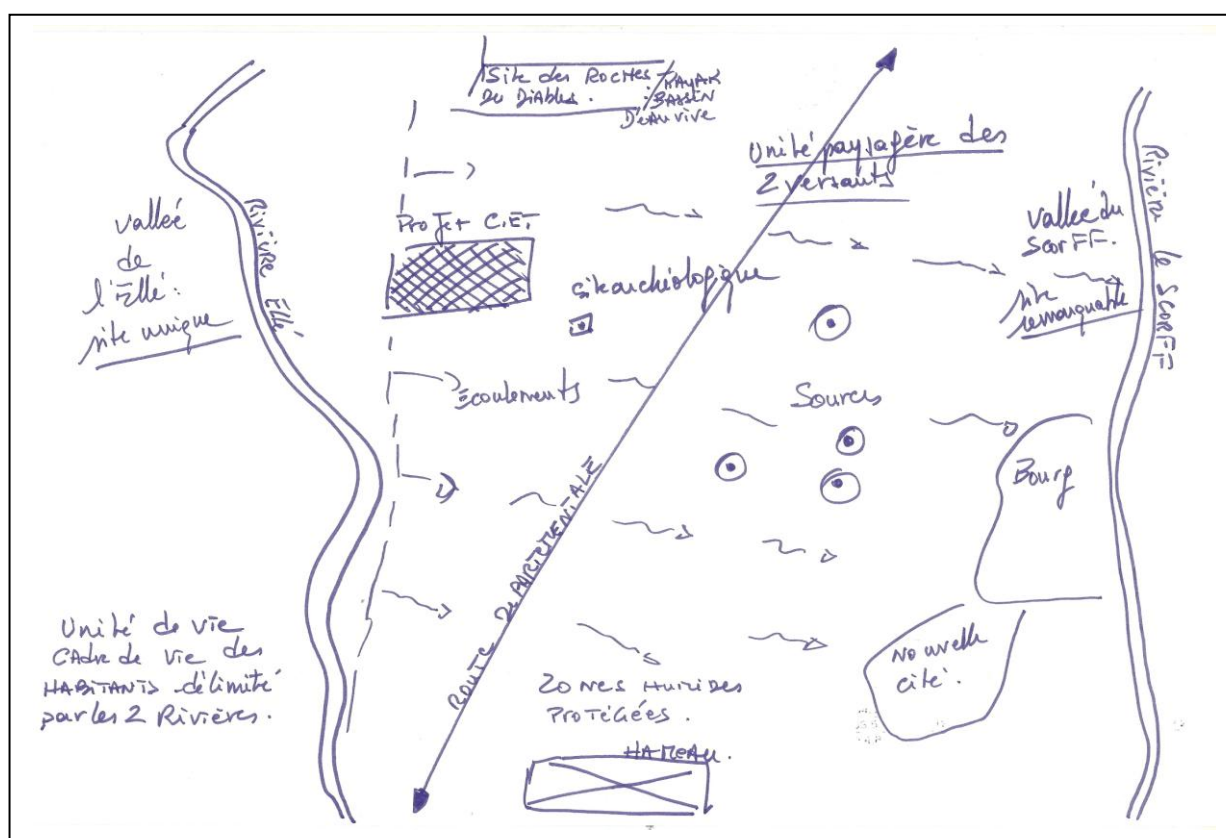 Site des Roches
Du Diables.
KAYAK
BASSIN
D'eau vive
Unité paysagère des
2 versants
vallée
de
l'Ellé :
site unique
Rivière Ellé
Projet C.E.T
site archéologique
vallée du
Scorff.
site
remarquable
Rivière le SCORFF
Écoulements
Sources
Bourg
ROUTE DÉPARTEMENTALE
Unité de vie
Cadre de vie des
HABITANTS délimité
par les 2 Rivières.
Zones Humides
Protégées.
HAMEAU.
Nouvelle
cité.